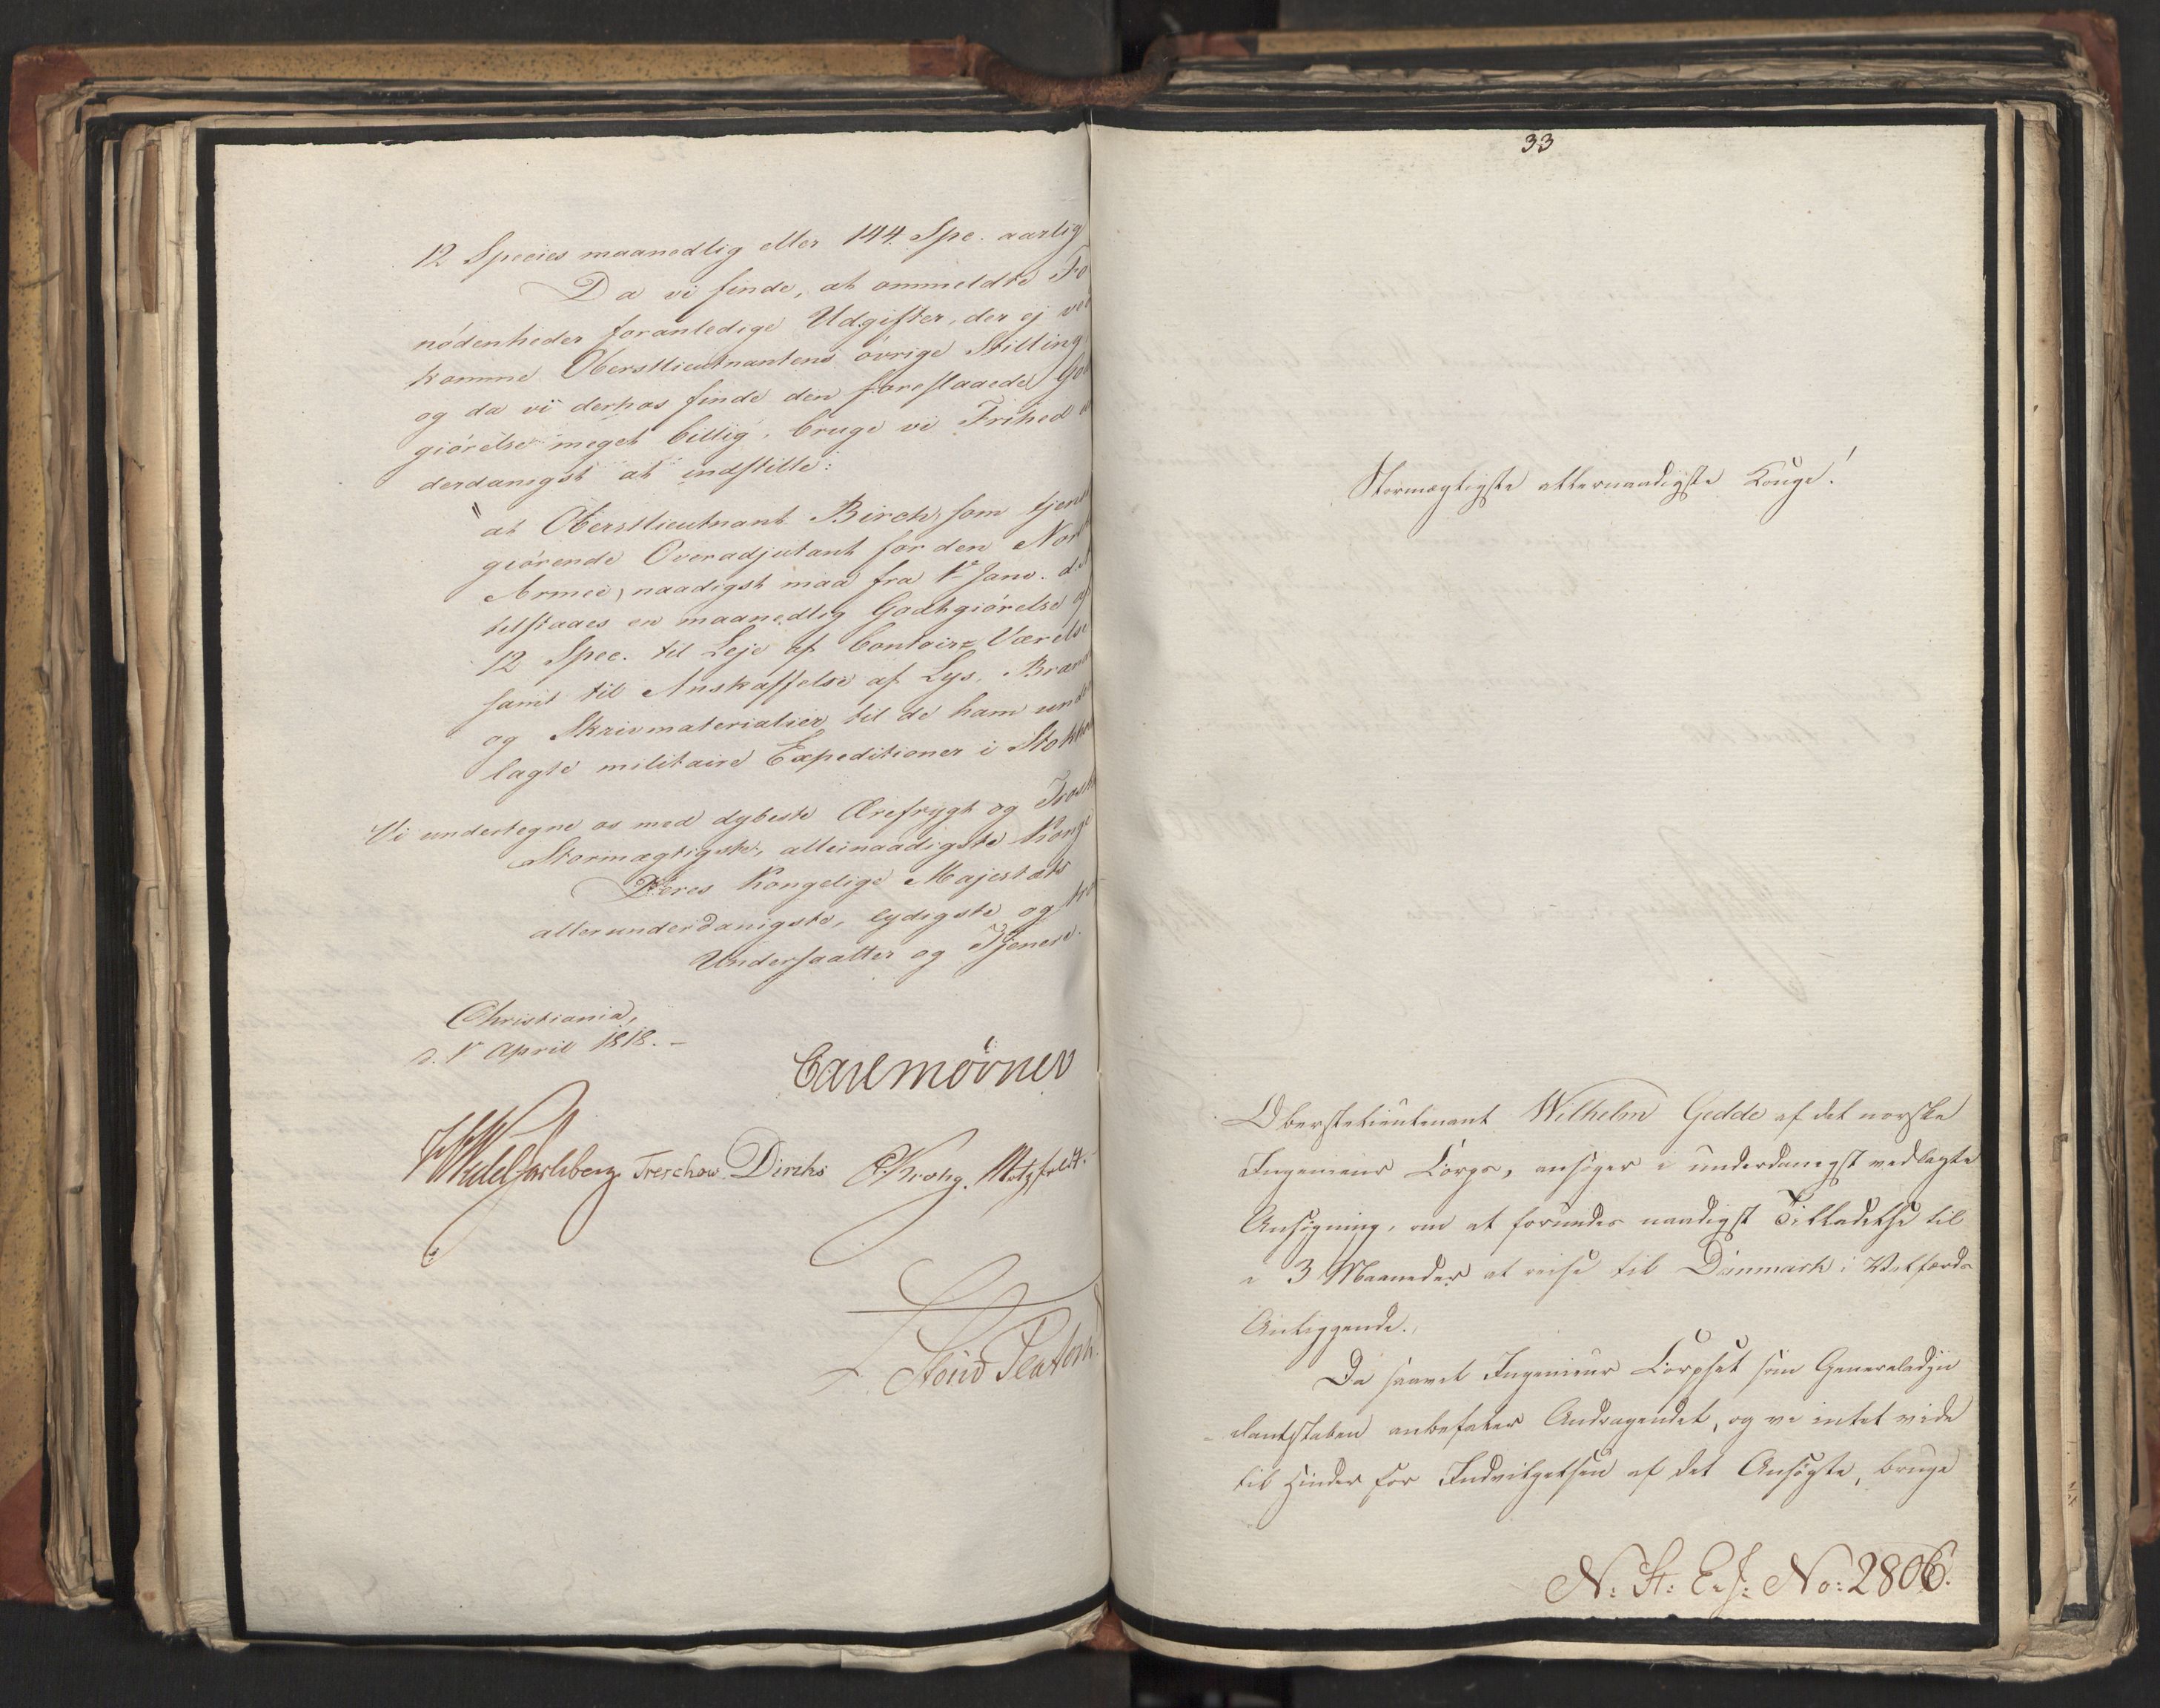 12 Species maanedlig eller 144. Spe. aarlig
Da vi finde, at ommeldte Fo
nødenheder foranledige Udgifter, der ej ved
komme Oberstlieutnantens øvrige Stilling
og da vi derhos finde den foreslaaede God
giørelse meget billig, bruge vi Frihed
derdanigst at indstille:
"at Oberstlieutnant Birch, som tjenst
giørende Overadjutant for den Nor
Armee, naadigst maa fra 1e Janv. d.A.
tilstaaes en maanedlig Godtgiørelse af
12 Spec. til Leje af Contoir-Værelse
samt til Anskaffelse af Lys, Bræn
og Skrivmaterialier til de ham under
lagte militaire Expeditioner i Stokho
Vi undertegne os med dybeste Ærefrygt og Trosk
Stormægtigste, allernaadigste Konge
Deres Kongelige Majestæts
allerunderdanigste, lydigste og tro
Undersaatter og Tjenere.
Christiania,
d. 1e April 1818. –
Carl Mörner
Wedel Jarlsberg Treschow Diriks C Krohg. Motzfeldt.
33
Stormægtigste allernaadigste Konge!
Oberstelieutenant Wilhelm Gedde af det norske
Ingenieur Corps, ansøger i underdanigst vedlagte
Ansøgning, om at forundes naadigst Tilladelse til
i 3 Maaneder at reise til Danmark i Velfærds
Anliggende.
Da saavel Ingenieur Corpset som Generaladju
-dantstaben anbefaler Andragendet, og vi intet vide
til Hinder for Indvilgelsen af det Ansøgte, bruge
N: St: E. J: No: 2806.